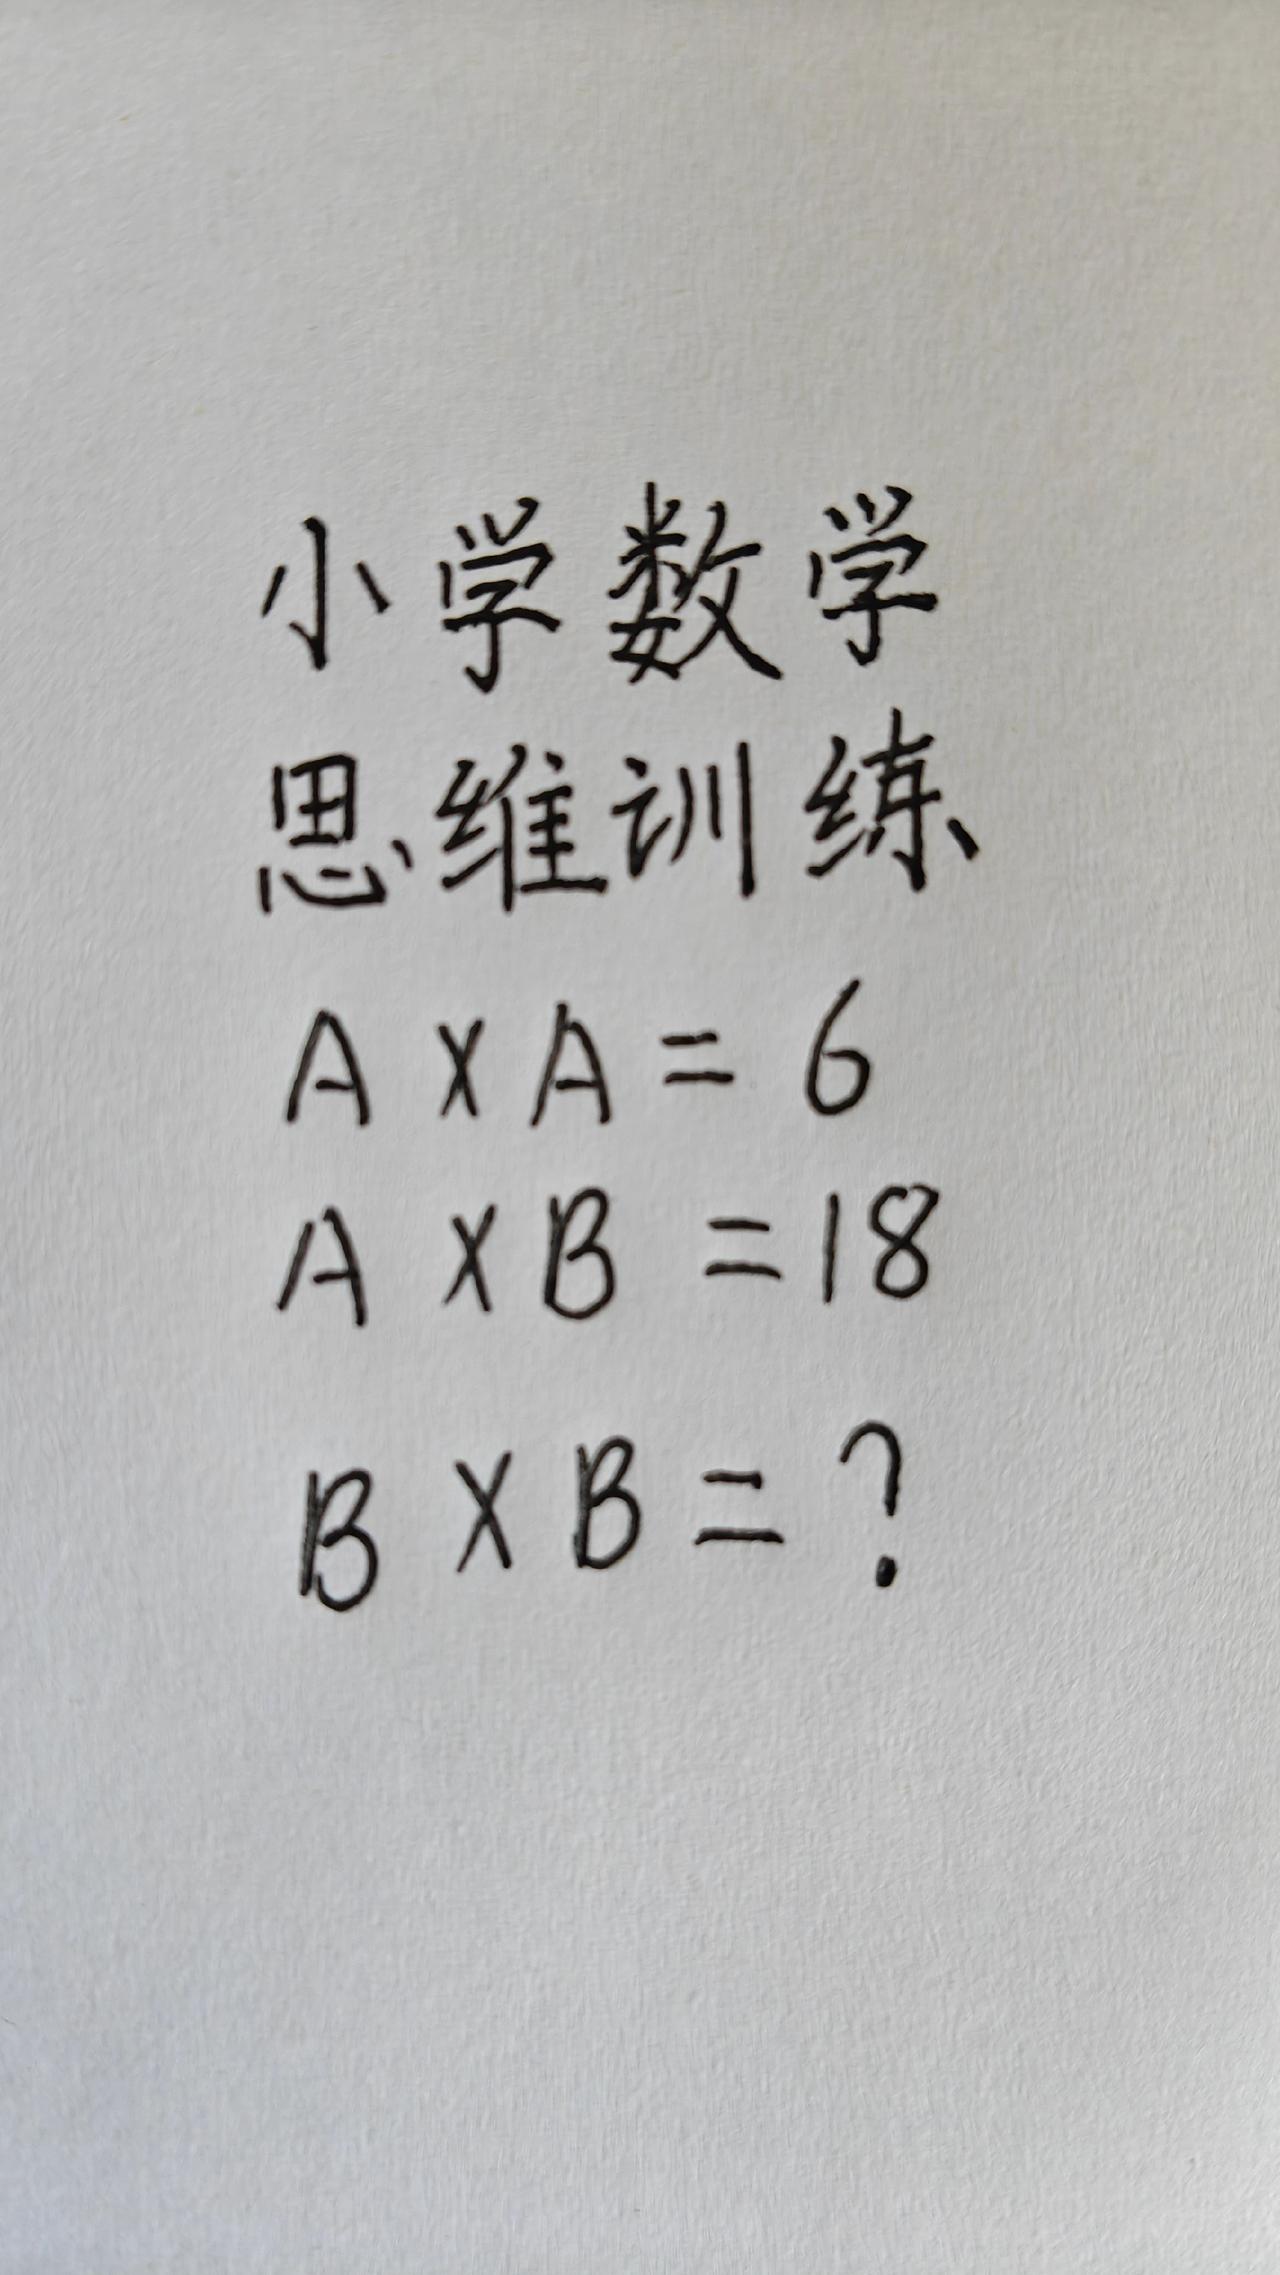 小学数学
思维训练
A×A=6
A×B=18
B×B=?